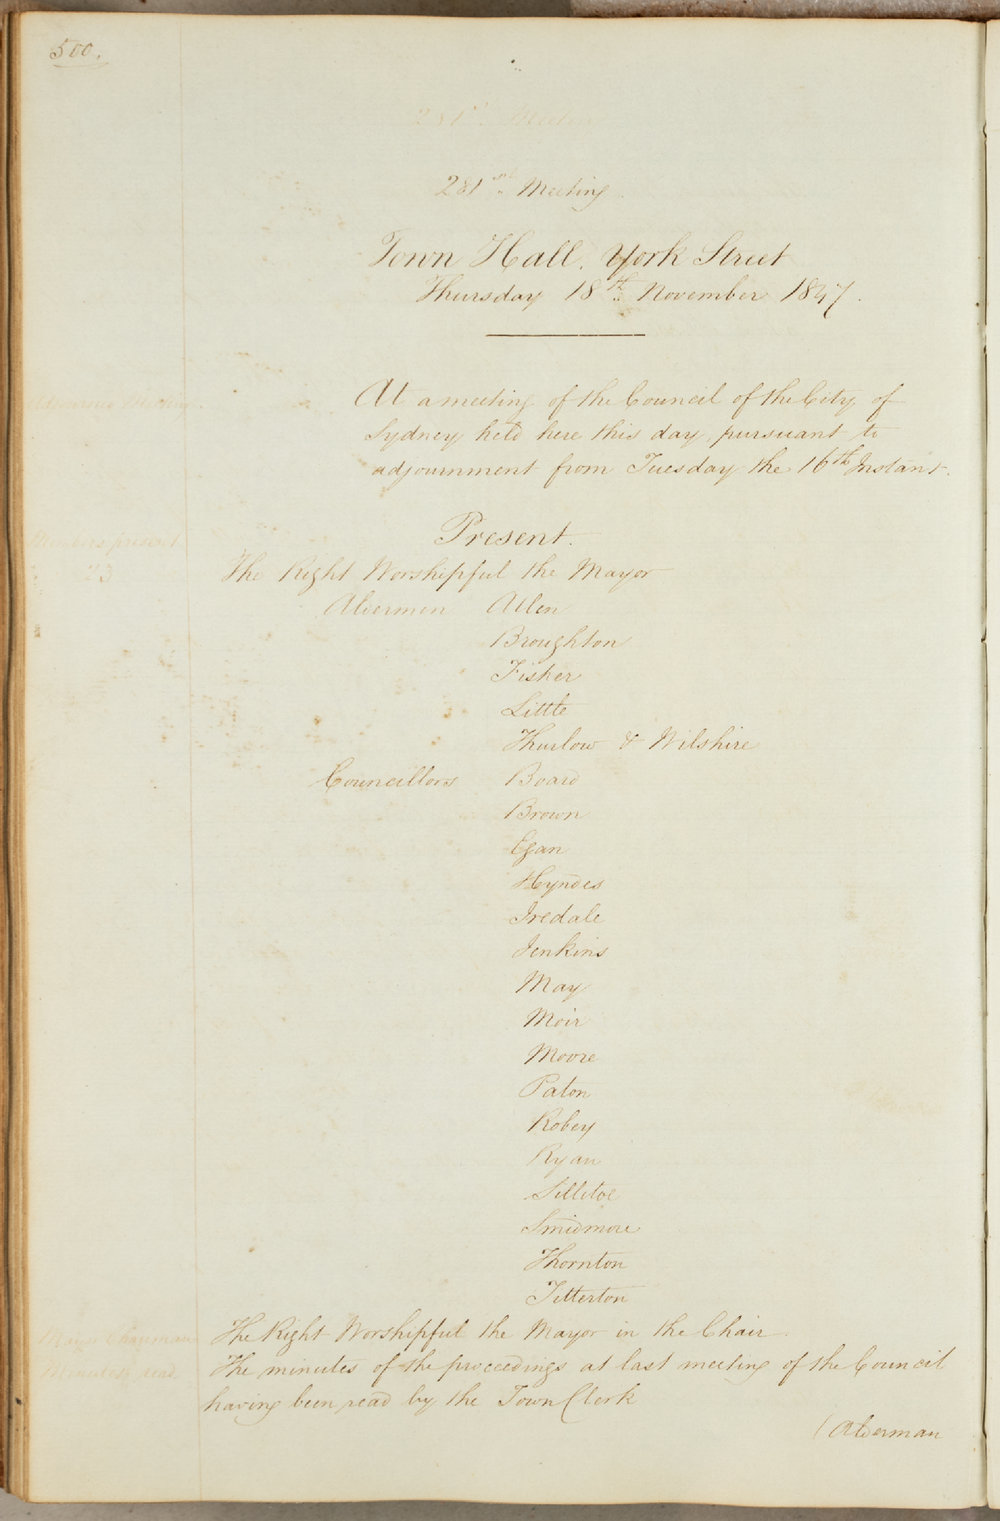 500.
281st Meeting
281st Meeting.
Town Hall, York Street
Thursday 18th November 1847.
Adjourned Meeting
At a meeting of the Council of the City of
Sydney held here this day pursuant to
adjournment from Tuesday the 16th Instant.
Present.
Members present
23
The Right Worshipful the Mayor
Aldermen Allen
Broughton
Fisher
Little
Thurlow & Wilshire
Councillors Board
Brown
Egan
Hyndes
Iredale
Jenkins
May
Moir
Moore
Paton
Robey
Ryan
Sillitoe
Smidmore
Thornton
Titterton
Mayor Chairman
The Right Worshipful the Mayor in the Chair.
Minutes read
The minutes of the proceedings at last meeting of the Council
having been read by the Town Clerk
(Alderman